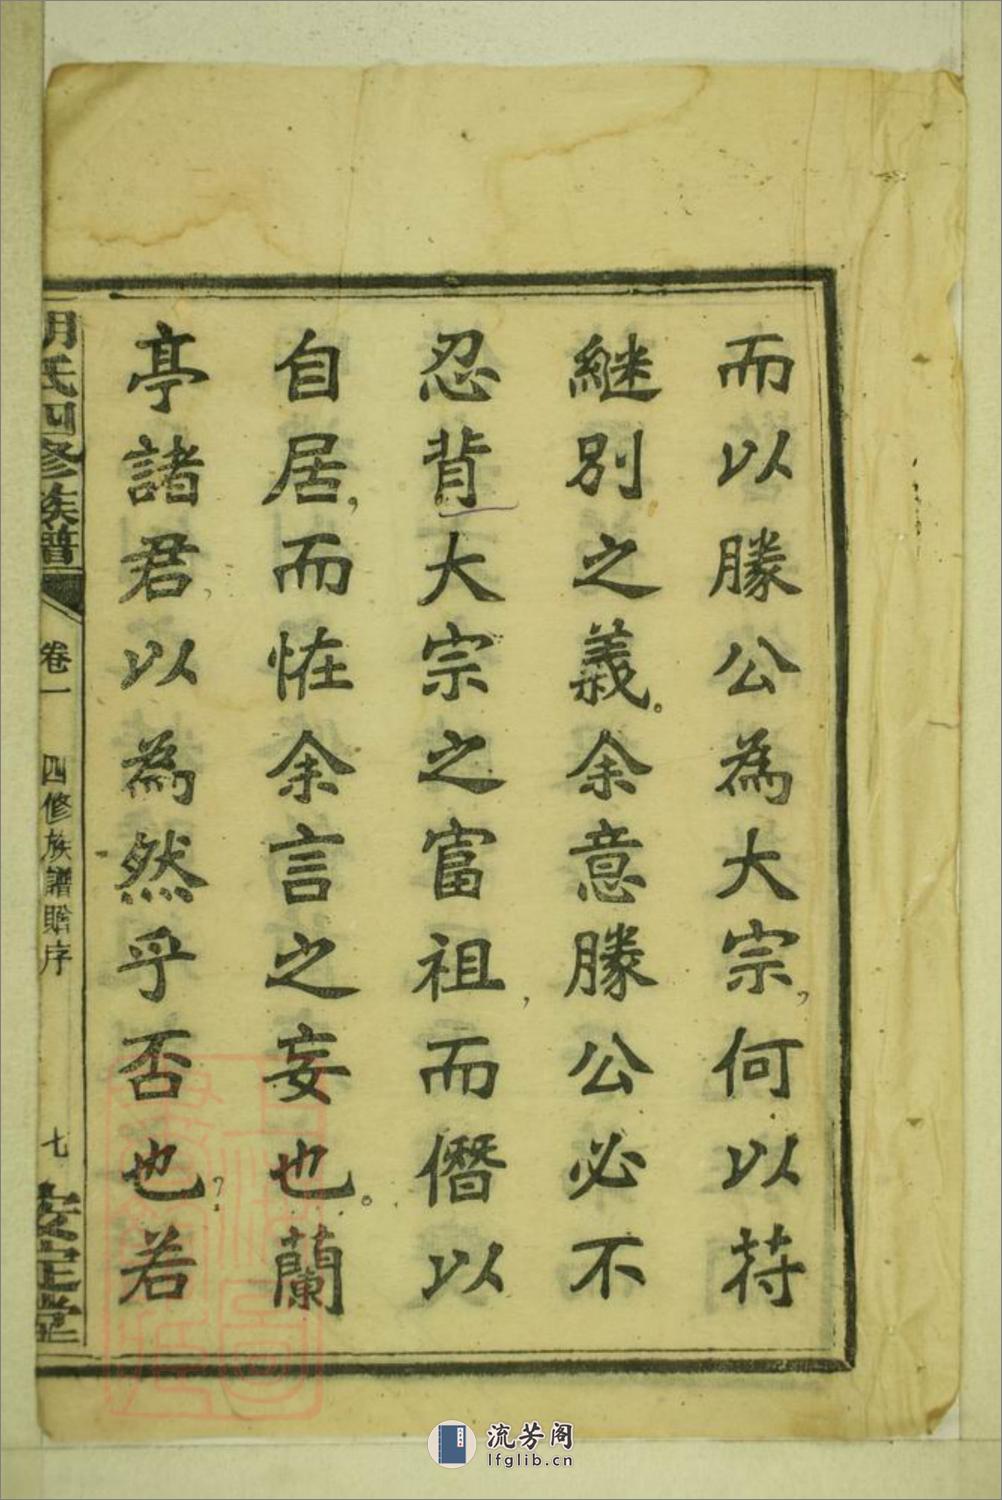 而以滕公為大宗，何以符
継别之義。余意滕公必不
忍背大宗之富祖，而僭以
自居，而恠余言之妄也。蘭
亭諸君，以為然乎否也？若
胡氏四修族譜
卷一
四修族譜贈序
七
安定堂
流芳阁
lfglib.cn